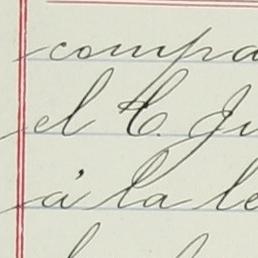 compa
el C. Ju
á la le